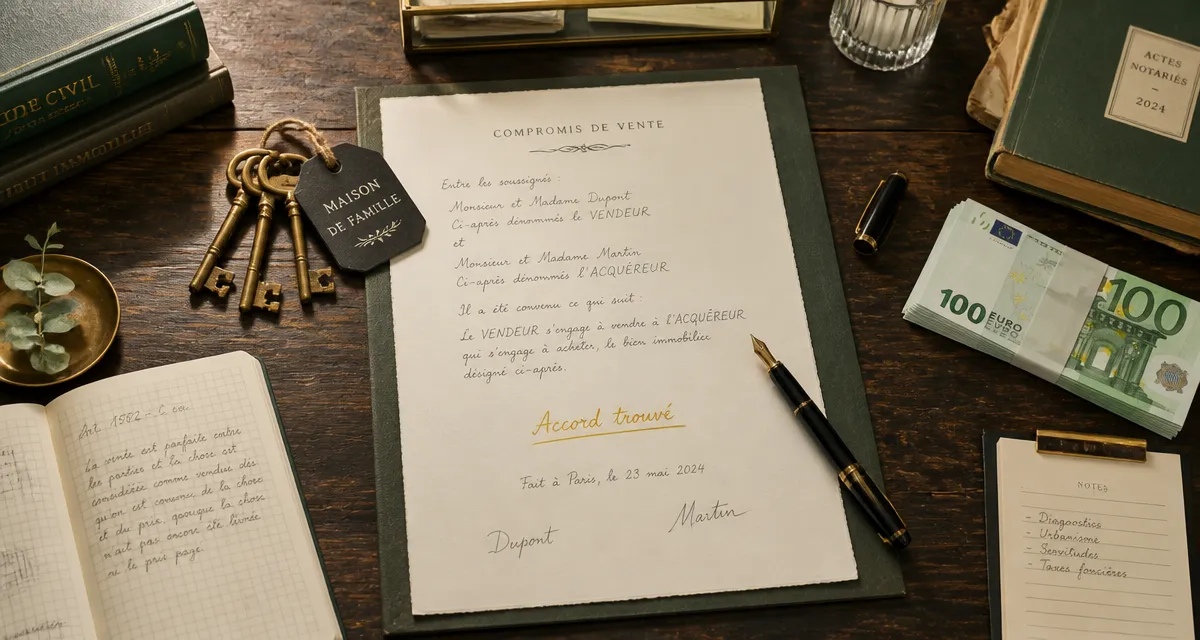 DE CIVIL
MAISON
DE FAMILLE
COMPROMIS DE VENTE
Entre les soussignés :
Monsieur et Madame Dupont
Ci-après dénommés le VENDEUR
et
Monsieur et Madame Martin
Ci-après dénommés l'ACQUÉREUR
Il a été convenu ce qui suit :
Le VENDEUR s'engage à vendre à l'ACQUÉREUR
qui s'engage à acheter, le bien immobilier
désigné ci-après.
Accord trouvé
Fait à Paris, le 23 mai 2024
Dupont
Martin
ACTES
NOTARIÉS
2024
100 EURO
100
Art. 1582 - C.
La vente est parfaite entre
les parties et la chose est
considérée comme vendue dès
qu'on est convenu de la chose
et du prix, quoique la chose
n'ait pas encore été livrée
ni le prix payé.
NOTES
- Diagnostics
- Urbanisme
- Servitudes
- Taxes foncières